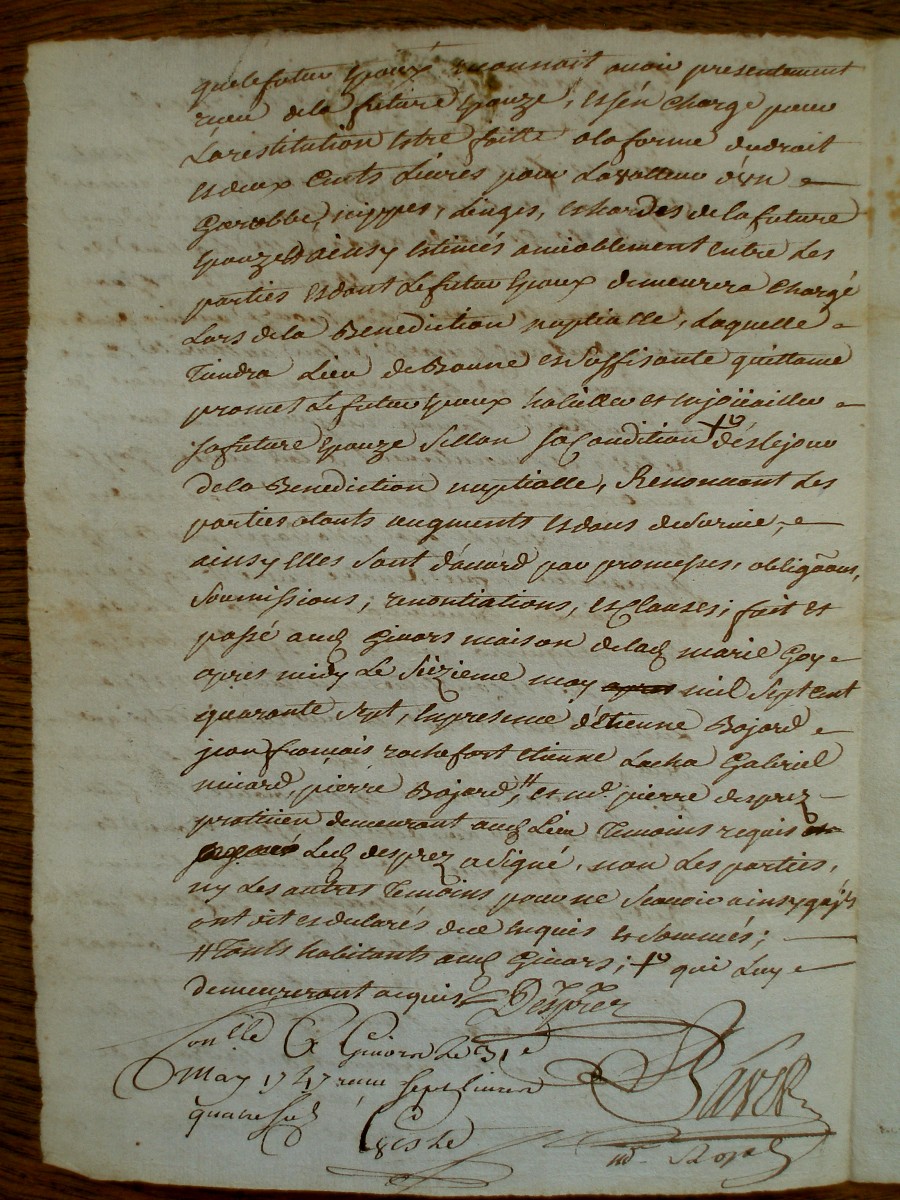 que le futur Epoux reconnoit avoir presentement
receu de la future Epouze, et s'en charge pour
La restitution Estre faitte a la forme du droit
et deux Cents Livres pour La valleur d'un
Garobbe, nippes, Linges, et hardes de la future
Epouze ainsy estimés amiablement entre Les
parties et dont Le futur Epoux demeurera Chargé
Lors de la Benediction nuptialle, Laquelle
Tiendra Lieu de Bonne et suffisante quittance
promet Le futur Epoux habiller et enjoüailler
sa future Epouze sellon sa Condition dés le jour
de la Benediction nuptialle, Renonceant Les
parties a touts augments et dons de survie,
ainsy elles sont d'accord par promesses, obligãons,
soumissions, renontiations, et Clauses; fait et
passé aud Givors maison de lad marie Goy
apres midy Le seizieme may mil sept cent
quarante sept, En presence d'Etienne Bajard
jean francois rochefort Etienne Lacha Gabriel
minard, pierre Bajard #, et md. pierre desprez
praticien demeurant aud Lieu Temoins requis
Led desprez a signé, non Les parties,
ny Les autres Temoins pour ne scavoir ainsy qu'jls
ont dit et declarés de ce enquis et sommés;
# Touts habitants aud Givors; qui Luy
demeureront acquis Desprez
Conllé a Givors Le 31e
May 1747 receu sept livres
quatre sols
Bavet
nore Royal